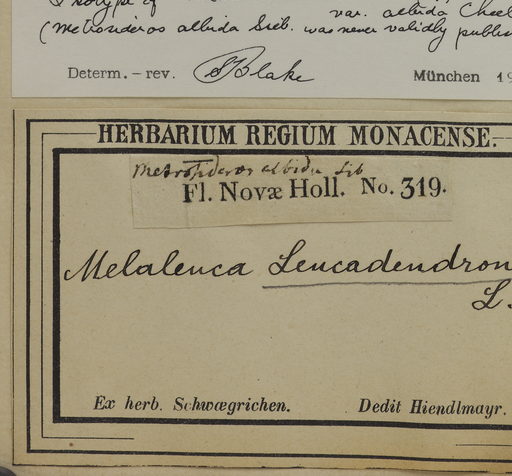 Isotype of
var. albida Cheel
(Metrosideros albida Sieb. was never validly publis
Determ. – rev. S Blake München 19
HERBARIUM REGIUM MONACENSE.
Metrosideros albida Sib
Fl. Novæ Holl. No. 319.
Melaleuca Leucadendron
L.
Ex herb. Schwægrichen. Dedit Hiendlmayr.